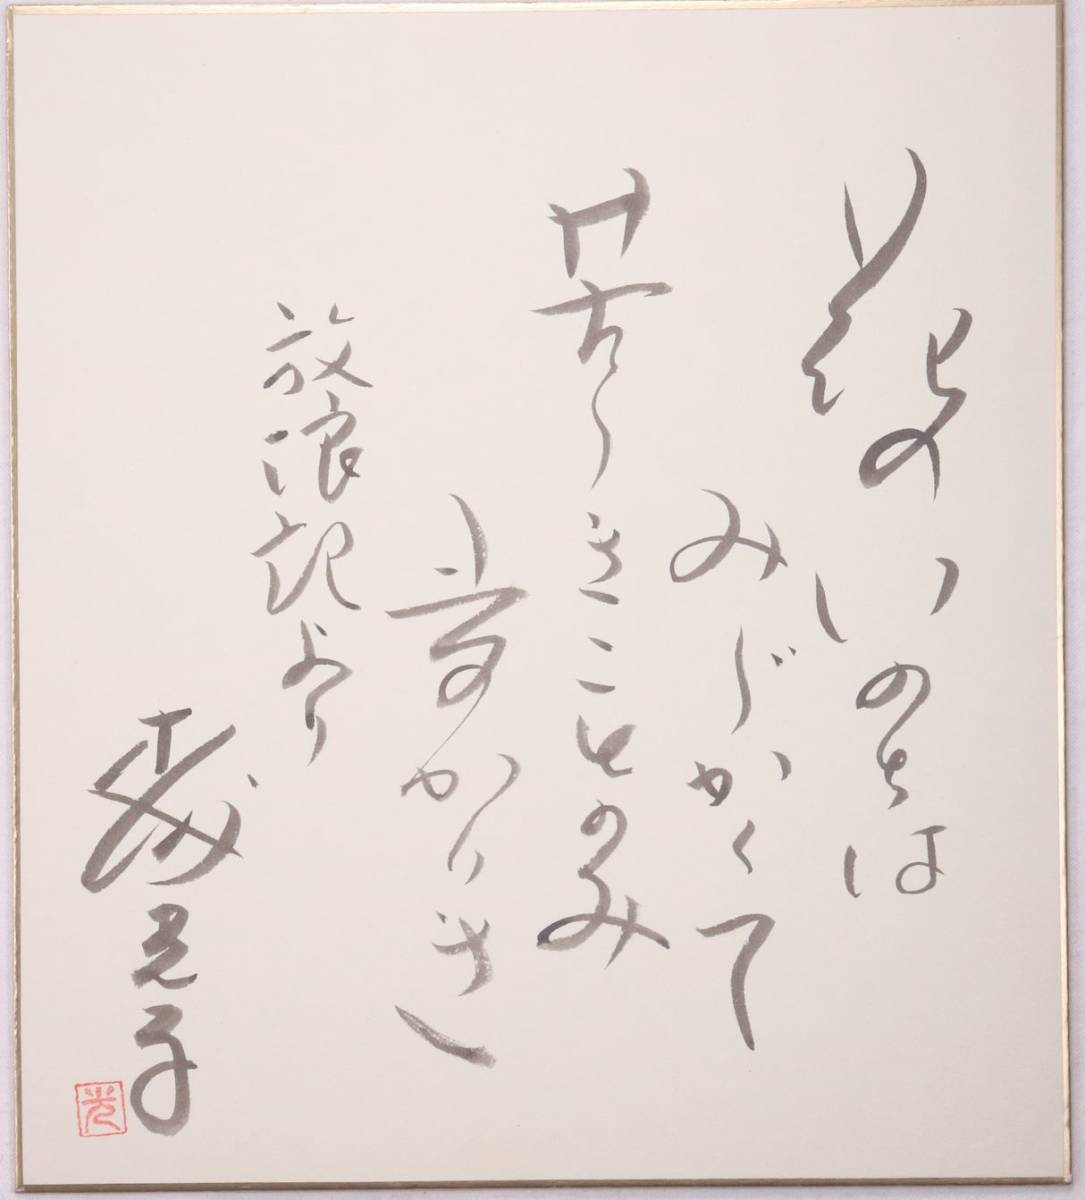 花のいのちは
みじかくて
苦しきことのみ
多かりき
放浪記より
森光子
光